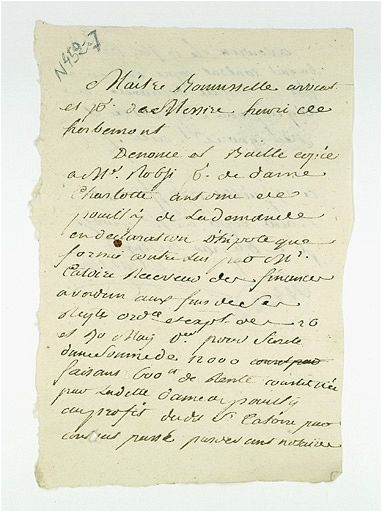 N 452-7
Maitre Rousselle avocat
et pr. de Messire henri de
herbemont
Denonce et Baille copie
a Me. p. de dame
Charlotte antoine de
pouilly de La demande
en declaration D'hipoteque
formée contre lui par Mr.
Catoire Receveur des finances
a verdun aux fins de ses
Reqte ordce et expt. des 26
et 30 May Der pour
d'une Somme de 12000
faisant 600 # de Rente constituée
par Ladite dame de pouilly
au profit dudt Sr Catoire par
contrat passé pardevant notaire